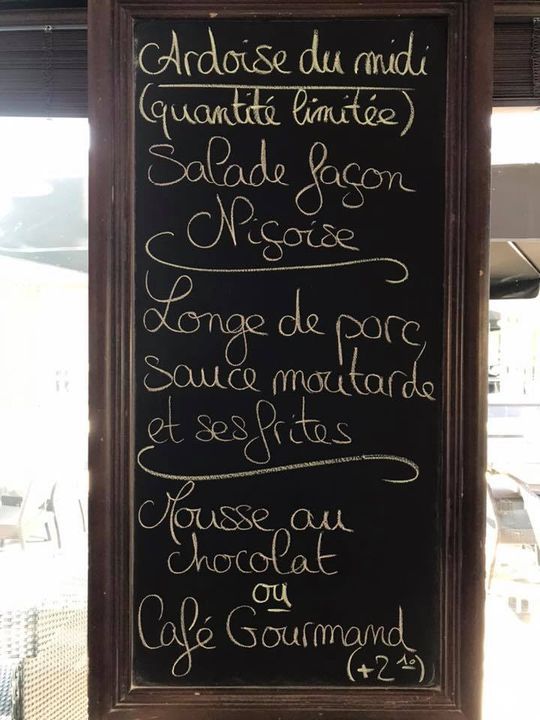 Ardoise du midi
(quantité limitée)
Salade façon
Niçoise
Longe de porc,
sauce moutarde
et ses frites
Mousse au
chocolat
ou
Café Gourmand
(+2¹⁰)